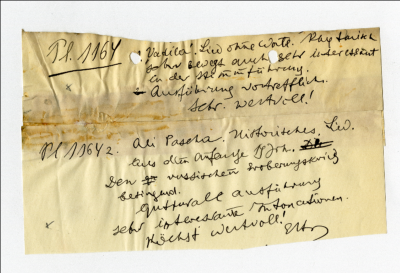 Pl. 1164 "Vasila". Lied ohne Worte. Rhythmisch
sehr bewegt auch sehr interessant
in der Stimmführung.
Ausführung vortrefflich.
Sehr wertvoll!
Pl 1164 2. Ali Pascha. Historisches Lied
aus dem Anfange
Den russischen Eroberungskrieg
besingend.
Gutturale Ausführung
sehr interessante Intonationen.
Höchst wertvoll!